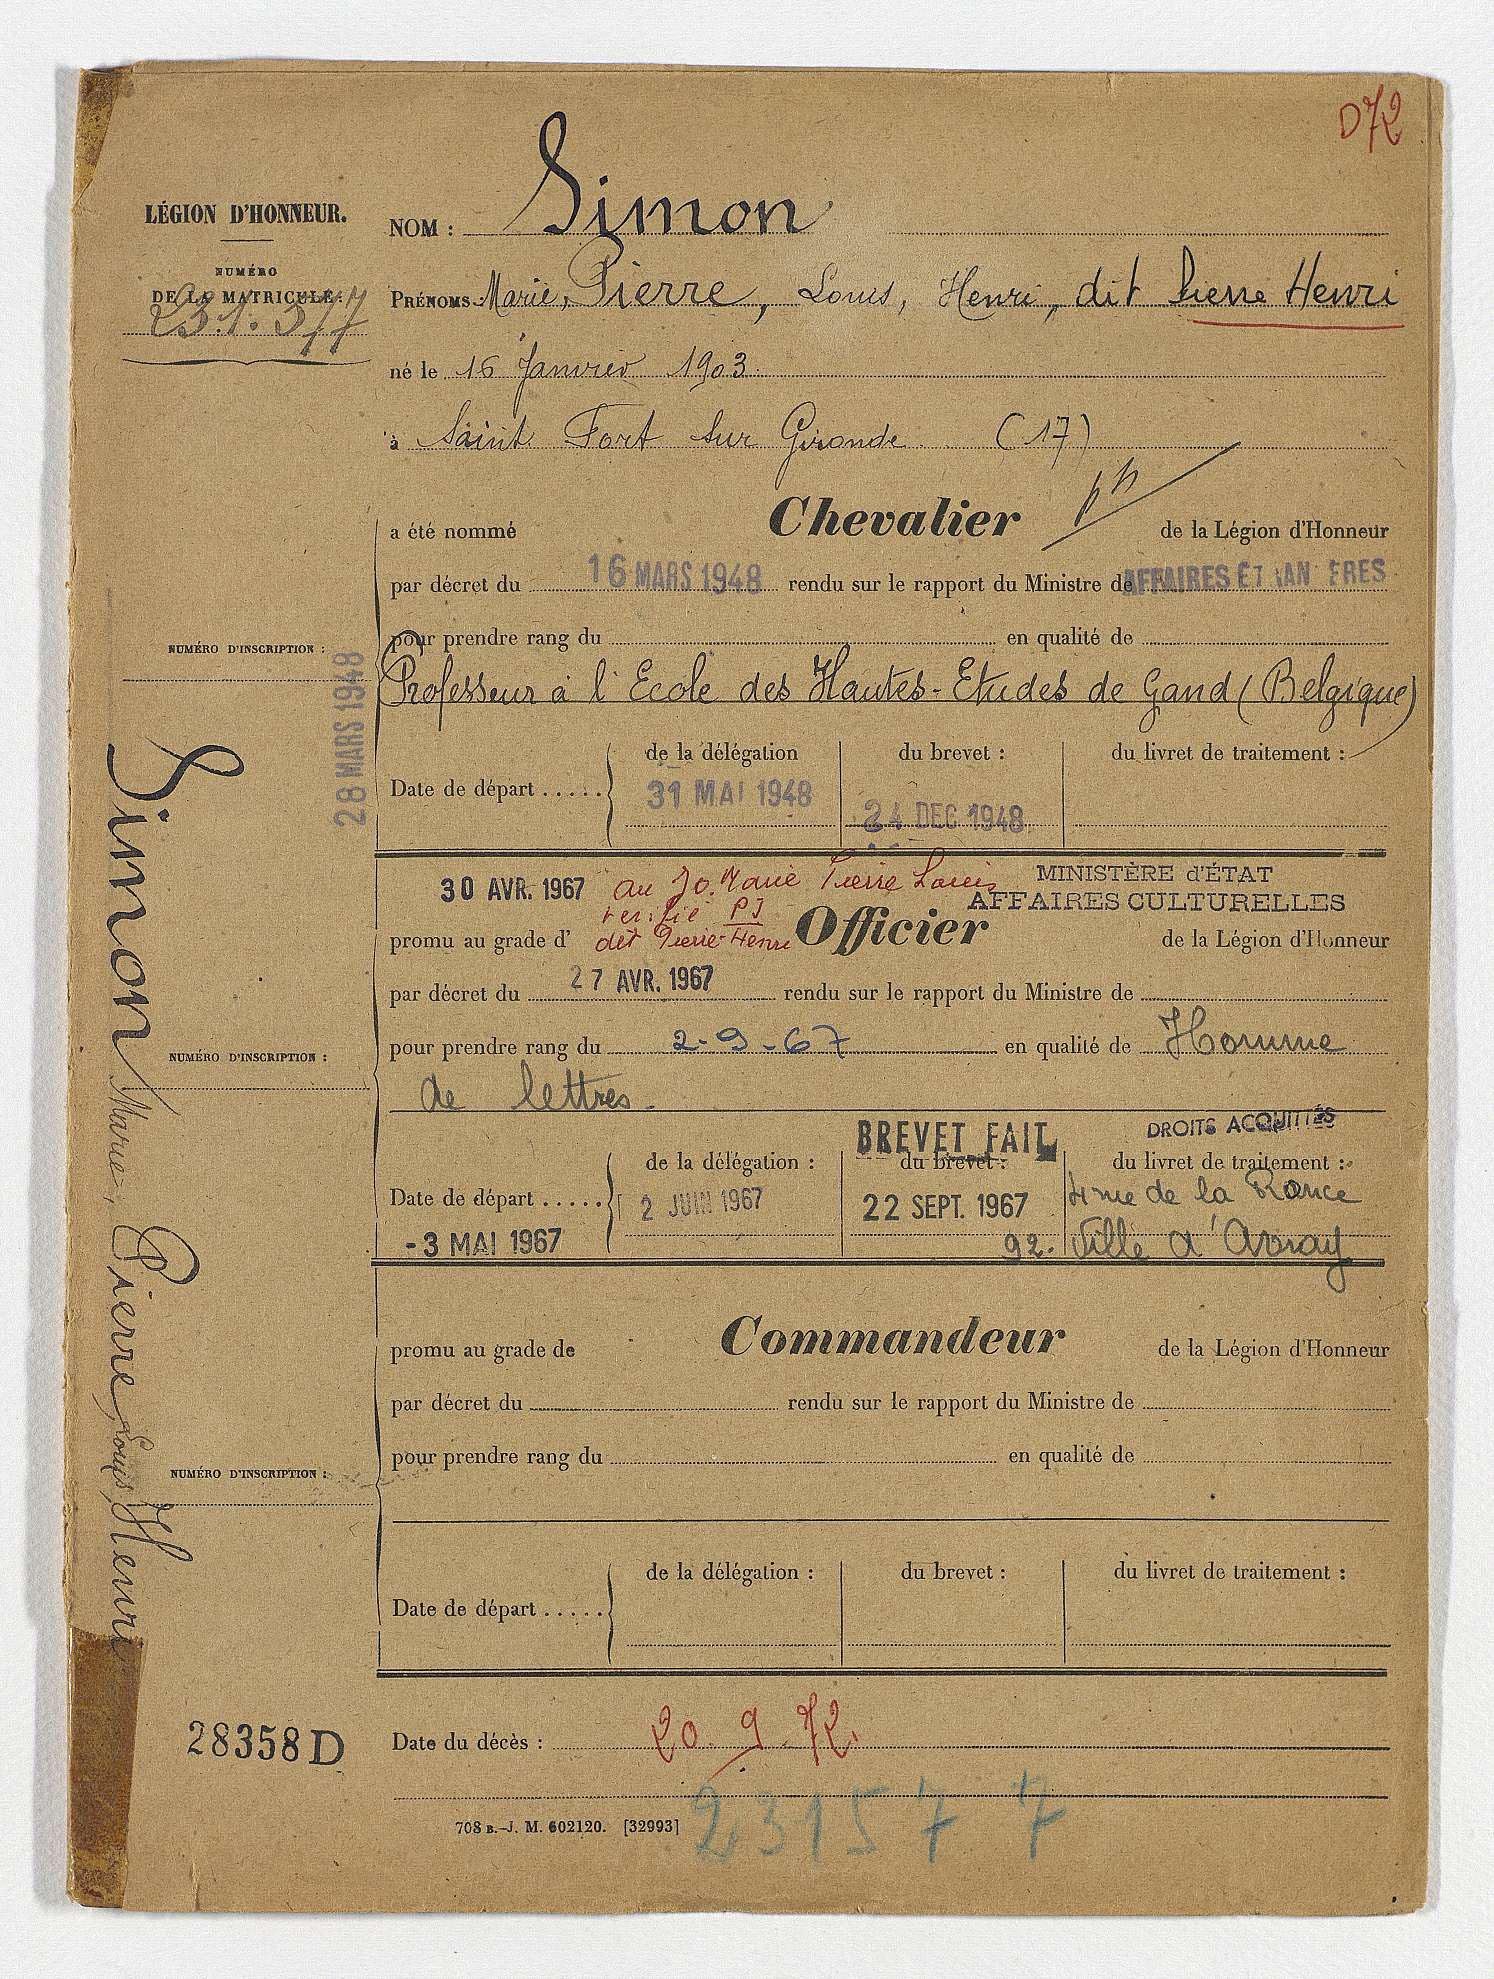 D72
LÉGION D'HONNEUR.
NUMÉRO
DE LA MATRICULE:
231.577
NOM : Simon
PRÉNOMS Marie, Pierre, Louis, Henri, dit Pierre Henri
né le 16 Janvier 1903
à Saint Fort sur Gironde (17)
a été nommé Chevalier de la Légion d'Honneur
par décret du 16 MARS 1948 rendu sur le rapport du Ministre de AFFAIRES ET AN ERES
NUMÉRO D'INSCRIPTION :
28 MARS 1948
pour prendre rang du en qualité de
Professeur à l'Ecole des Hautes-Etudes de Gand (Belgique)
de la délégation du brevet : du livret de traitement :
Date de départ .....
31 MAI 1948
24 DEC 1948
30 AVR. 1967 au JO. Marie Pierre Louis
MINISTÈRE d'ÉTAT
AFFAIRES CULTURELLES
promu au grade d' dit Pierre-Henri Officier de la Légion d'Honneur
par décret du 27 AVR. 1967 rendu sur le rapport du Ministre de
NUMÉRO D'INSCRIPTION :
pour prendre rang du 2-9-67 en qualité de Homme
de lettres.
BREVET FAIT
DROITS ACQUITTÉS
de la délégation : du brevet : du livret de traitement :
Date de départ ..... 2 JUIN 1967 22 SEPT. 1967 de la Ronce
-3 MAI 1967 92. Ville d'Avray
promu au grade de Commandeur de la Légion d'Honneur
par décret du rendu sur le rapport du Ministre de
pour prendre rang du en qualité de
NUMÉRO D'INSCRIPTION :
de la délégation : du brevet : du livret de traitement :
Date de départ .....
Simon Marie, Pierre, Louis, Henri
28358 D
Date du décès : 20.9.72.
231577
708 B.-J. M. 602120. [32993]